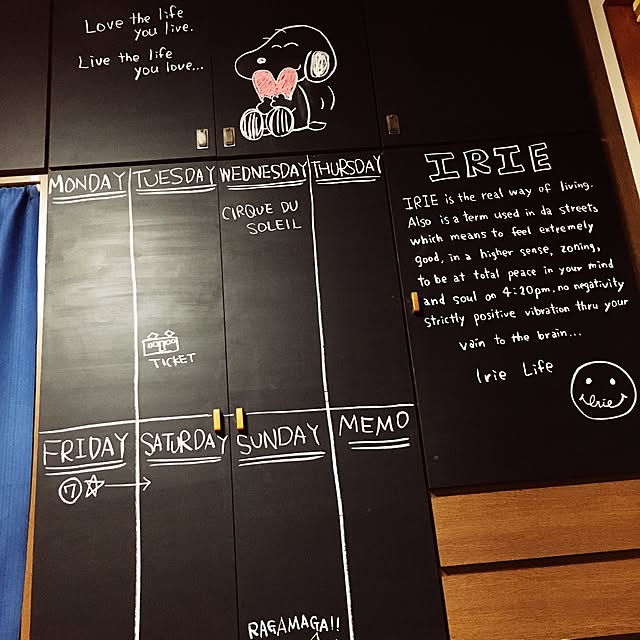 Love the life
you live.
Live the life
you love...
MONDAY
TUESDAY
WEDNESDAY
THURSDAY
CIRQUE DU
SOLEIL
TICKET
FRIDAY
SATURDAY
SUNDAY
MEMO
⑦☆→
RAGAMAGA!!
IRIE
IRIE is the real way of living.
Also is a term used in da streets
which means to feel extremely
good, in a higher sense, zoning,
to be at total peace in your mind
and soul on 4:20pm. no negativity
strictly positive vibration thru your
vain to the brain...
Irie Life
Irie